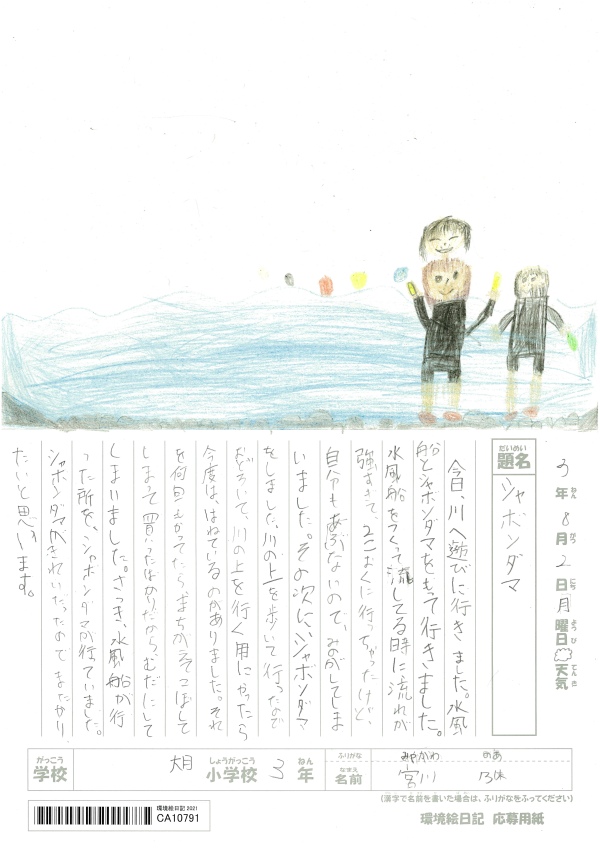 3年ねん 8月がつ 2日にち 月曜日ようび 天気てんき
だいめい
題名
シャボンダマ
今日、川へ遊びに行きました。水風
船とシャボンダマをもって行きました。
水風船をつくって流してる時に流れが
強すぎて、とおくに行っちゃったけど、
自分もあぶないので、みのがしてしま
いました。その次に、シャボンダマ
をしました。川の上を歩いて行ったので
おどろいて、川の上を行く用にやったら
今度は、はねているのがありました。それ
を何回もやってたらまちがえてこぼして
しまって買ったばかりだから、むだにして
しまいました。さっき、水風船が行
った所を、シャボンダマが行ていました。
シャボンダマがきれいだったのでまたやり
たいと思います。
がっこう
学校
しょうがっこう
小学校 3 ねん
年
ふりがな みやかわ のあ
なまえ
名前 宮川
(漢字で名前を書いた場合は、ふりがなをふってください)
環境絵日記 2021
CA10791
環境絵日記 応募用紙